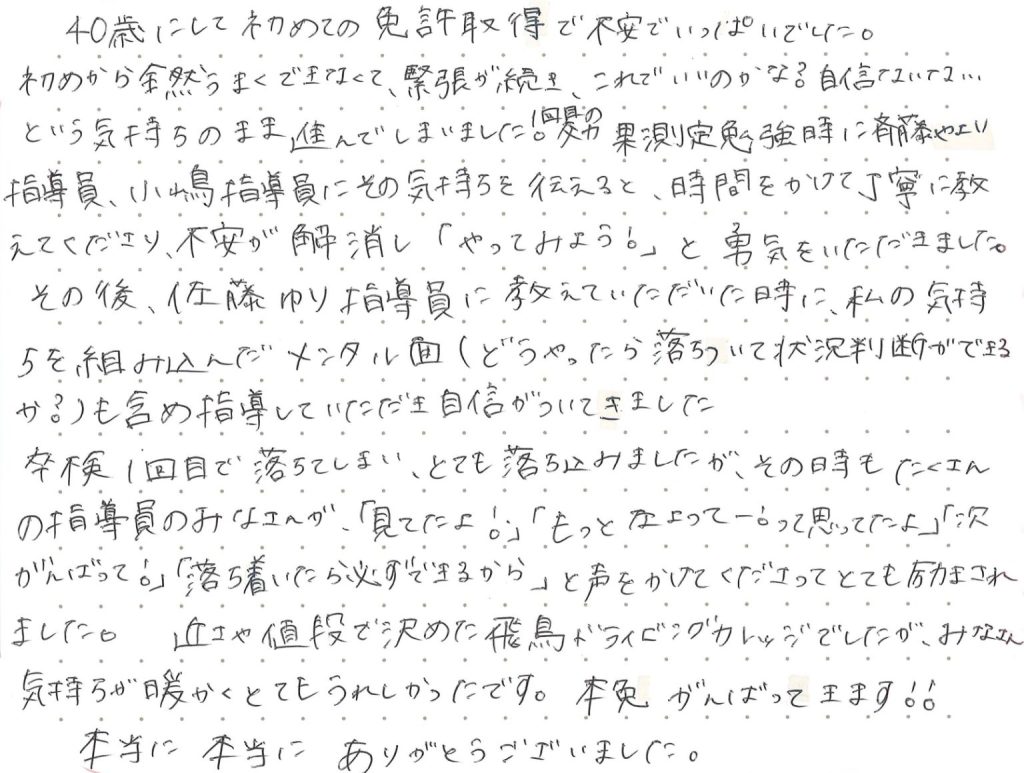 40歳にして初めての免許取得で不安でいっぱいでした。
初めから全然うまくできなくて、緊張が続き、これでいいのかな?自信ないな…
という気持ちのまま進んでしまいました!1回目の効果測定勉強時に斉藤やよい
指導員、小鳥指導員にその気持ちを伝えると、時間をかけて丁寧に教
えてくださり、不安が解消し「やってみよう!」と勇気をいただきました。
その後、佐藤ゆり指導員に教えていただいた時に、私の気持
ちを組み込んだメンタル面(どうやったら落ちついて状況判断ができる
か?)も含め指導していただき自信がついてきました
卒検1回目で落ちてしまい、とても落ち込みましたが、その時もたくさん
の指導員のみなさんが、「見てたよ!」「もっと左よって―!って思ってたよ」「次
がんばって!」「落ち着いたら必ずできるから」と声をかけてくださってとても励まされ
ました。 近さや値段で決めた飛鳥ドライビングカレッジでしたが、みなさん
気持ちが暖かくとてもうれしかったです。本免がんばってきます!!
本当に 本当に ありがとうございました。